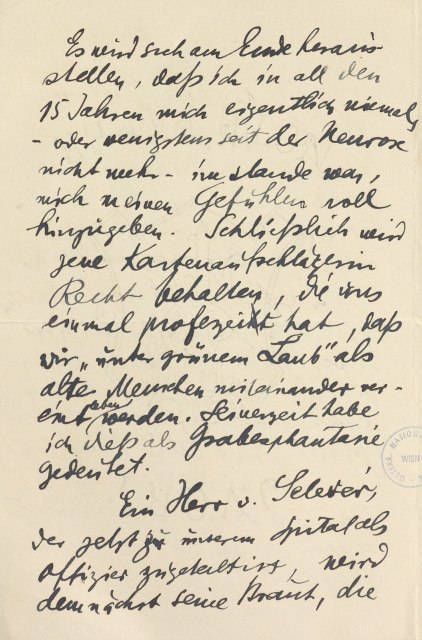 Es wird sich am Ende heraus-
stellen, daß ich in all den
15 Jahren mich eigentlich niemals
- oder wenigstens seit der Neurose
nicht mehr - imstande war,
mich meinen Gefühlen voll
hinzugeben. Schließlich wird
jene Kartenaufschlägerin
Recht behalten, die uns
einmal profezeiht hat, daß
wir „unter grünem Laub" als
alte Menschen miteinander ver-
eint leben werden. Seinerzeit habe
ich dieß als Grabesphantasie
gedeutet.
Ein Herr v.
der jetzt unserem Spital als
Offizier zugeteilt ist, wird
demnächst seine Braut, die
WIEN